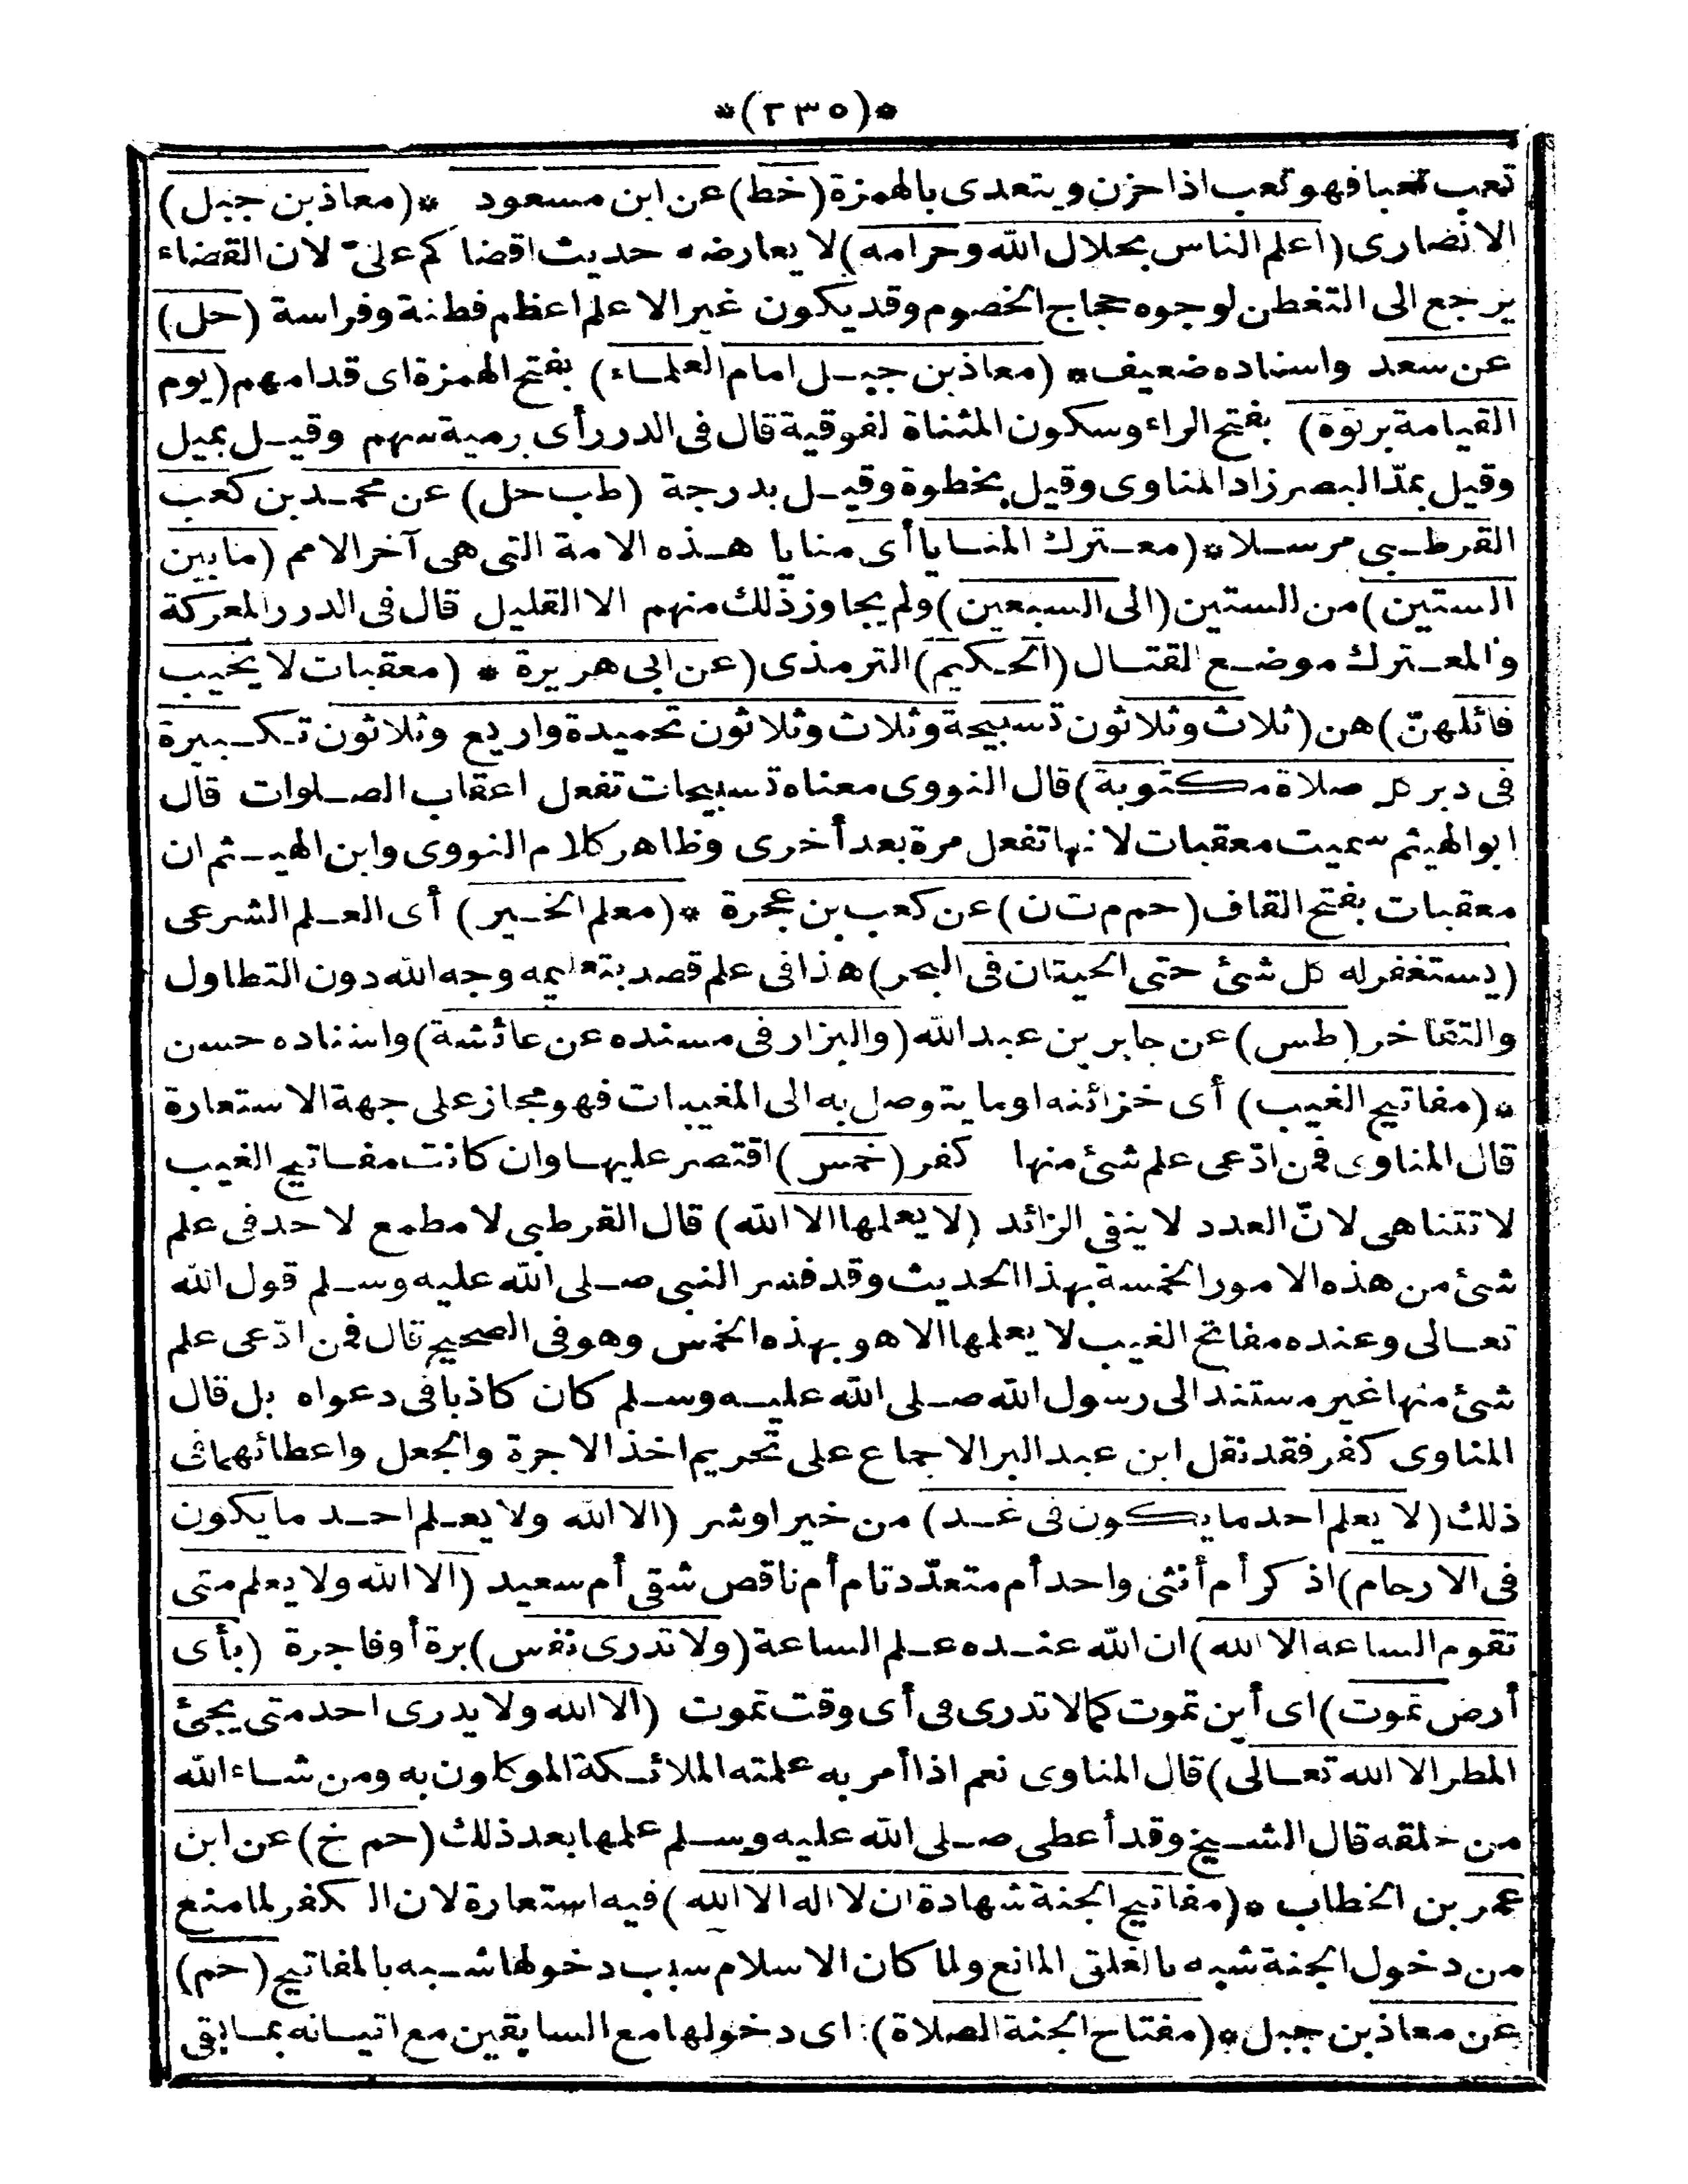 *(٢٣٥)*
تعب تعبا فهو تعب اذا حزن ويتعدى بالهمزة (خط) عن ابن مسعود * (معاذ بن جبل)
الانصارى (اعلم الناس بحلال الله وحرامه) لا يعارضه حديث اقضاكم على لان القضاء
يرجع الى التفطن لوجوه حجاج الخصوم وقد يكون غير الاعلم اعظم فطنة وفراسة (حل)
عن سعد واسناده ضعيف * (معاذ بن جبل امام العلماء) بفتح الهمزة اى قدامهم (يوم
القيامة برتوة) بفتح الراء وسكون المثناة لفوقية قال فى الدرر أى رمية سهم وقيل بميل
وقيل بمدّ البصر زاد المناوى وقيل بخطوة وقيل بدرجة (طب حل) عن محمد بن كعب
القرظى مرسلا * (معترك المنايا أى منايا هذه الامة التى هى آخر الامم (ما بين
الستين) من السنين (الى السبعين) ولم يجاوز ذلك منهم الا القليل قال فى الدرر المعركة
والمعترك موضع القتال (الحكيم) الترمذى (عن ابى هريرة * (معقبات لا يخيب
قائلهنّ) هن (ثلاث وثلاثون تسبيحة وثلاث وثلاثون تحميدة واربع وثلاثون تكبيرة
فى دبر كل صلاة مكتوبة) قال النووى معناه تسبيحات تفعل اعقاب الصلوات قال
ابو الهيثم سميت معقبات لانها تفعل مرة بعد أخرى وظاهر كلام النووى وابن الهيثم ان
معقبات بفتح القاف (حم م ت ن) عن كعب بن عجرة * (معلم الخير) أى العلم الشرعى
(يستغفر له كل شئ حتى الحيتان فى البحر) هذا فى علم قصد بتعليمه وجه الله دون التطاول
والتفاخر (طس) عن جابر بن عبد الله (والبزار فى مسنده عن عائشة) واسناده حسن
* (مفاتيح الغيب) أى خزائنه او ما يتوصل به الى المغيبات فهو مجاز على جهة الاستعارة
قال المناوى فمن ادّعى علم شئ منها كفر (خمس) اقتصر عليها وان كانت مفاتيح الغيب
لا تتناهى لانّ العدد لا ينفى الزائد (لا يعلمها الا الله) قال القرطبى لا مطمع لاحد فى علم
شئ من هذه الامور الخمسة بهذا الحديث وقد فسر النبى صلى الله عليه وسلم قول الله
تعالى وعنده مفاتح الغيب لا يعلمها الا هو بهذه الخمس وهو فى الصحيح قال فمن ادّعى علم
شئ منها غير مستند الى رسول الله صلى الله عليه وسلم كان كاذبا فى دعواه بل قال
المناوى كفر فقد نقل ابن عبد البر الاجماع على تحريم اخذ الاجرة والجعل واعطائهما فى
ذلك (لا يعلم احد ما يكون فى غد) من خير او شر (الا الله ولا يعلم احد ما يكون
فى الارحام) اذكر أم أنثى واحد أم متعدّد تام أم ناقص شقى أم سعيد (الا الله ولا يعلم متى
تقوم الساعه الا الله) ان الله عنده علم الساعة (ولا تدرى نفس) برة أو فاجرة (بأى
أرض تموت) اى أين تموت كما لا تدرى فى أى وقت تموت (الا الله ولا يدرى احد متى يجئ
المطر الا الله تعالى) قال المناوى نعم اذا أمر به علمته الملائكة الموكلون به ومن شاء الله
من خلقه قال الشيخ وقد أعطى صلى الله عليه وسلم علمها بعد ذلك (حم خ) عن ابن
عمر بن الخطاب * (مفاتيح الجنة شهادة ان لا اله الا الله) فيه استعارة لان الكفر لما منع
من دخول الجنة شبه بالغلق المانع ولما كان الاسلام سبب دخولها شبه بالمفاتيح (حم)
عن معاذ بن جبل * (مفتاح الجنة الصلاة) اى دخولها مع السابقين مع اتيانه بما بقى